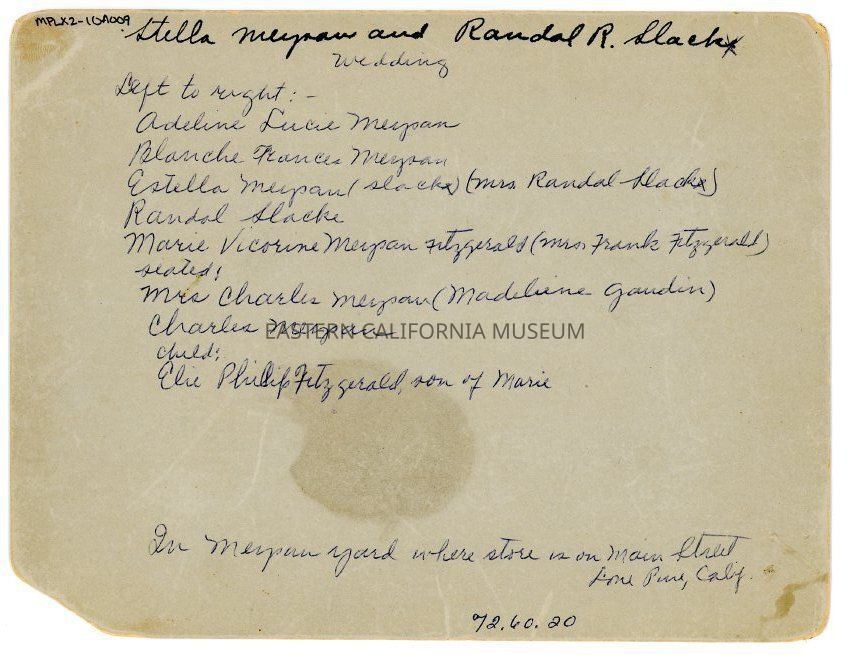 MPLX2-10A009
Stella Meysan and Randal R. Slack
Wedding
Left to right:-
Adeline Lucie Meysan
Blanche Frances Meysan
Estella Meysan (Slack) (Mrs. Randal Slack)
Randal Slacke
Marie Vicorine Meysan Fitzgerald (Mrs. Frank Fitzgerald)
seated:
Mrs Charles Meysan (Madeliene Gaudin)
Charles Meysan
EASTERN CALIFORNIA MUSEUM
child:
Elie Philip Fitzgerald, son of Marie
In Meysan yard where store is on Main Street
Lone Pine, Calif.
72.60.20